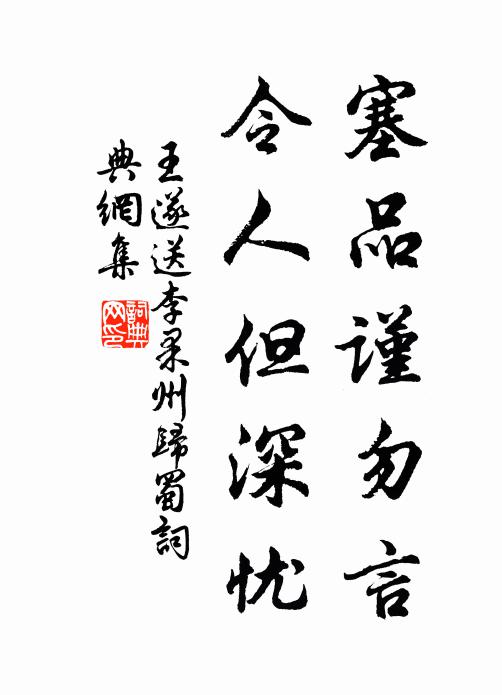 塞品謹勿言
令人但深忧
王遂送李果州歸蜀詞
典網集
詞典
网印